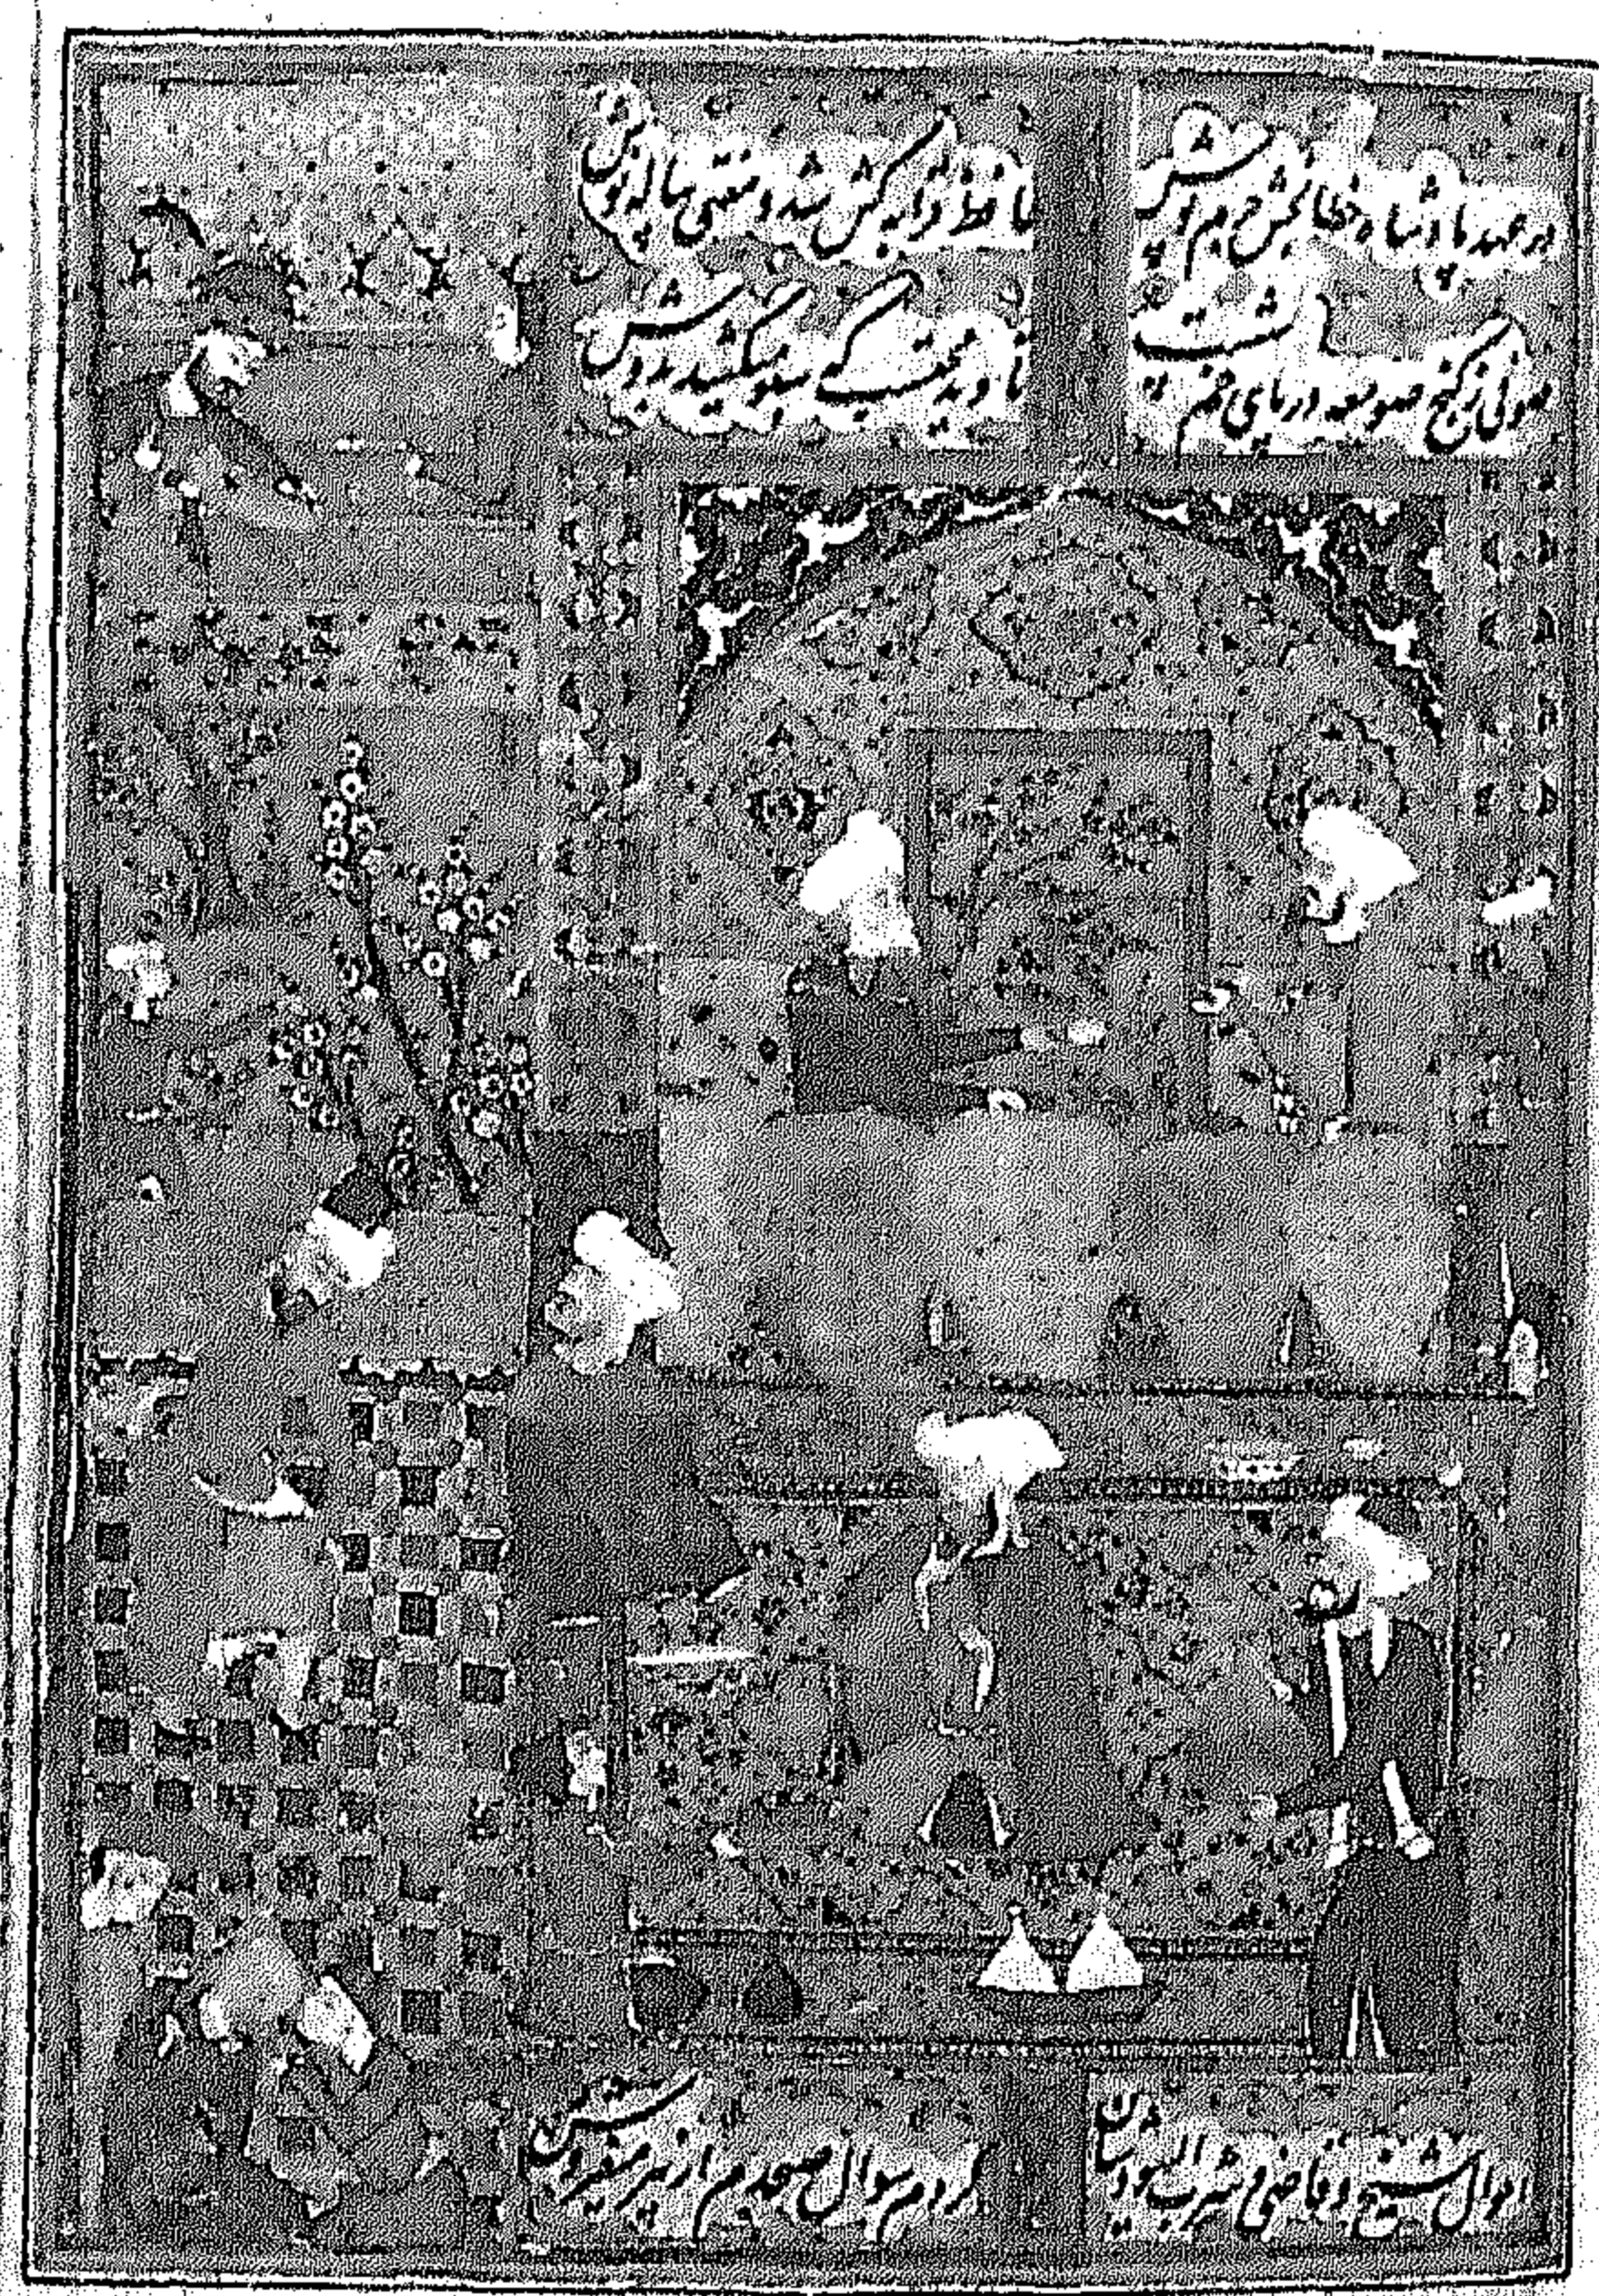 در عهد پادشاه خطا بخش جرم پوش
حافظ قرابه کش شد و مفتی پیاله نوش
صوفی ز کنج صومعه در پای خم نشست
تا دید محتسب که سبو میکشد بدوش
احوال شیخ و قاضی و شرب الیهودشان
کردم سوال صبحدم از پیر میفروش